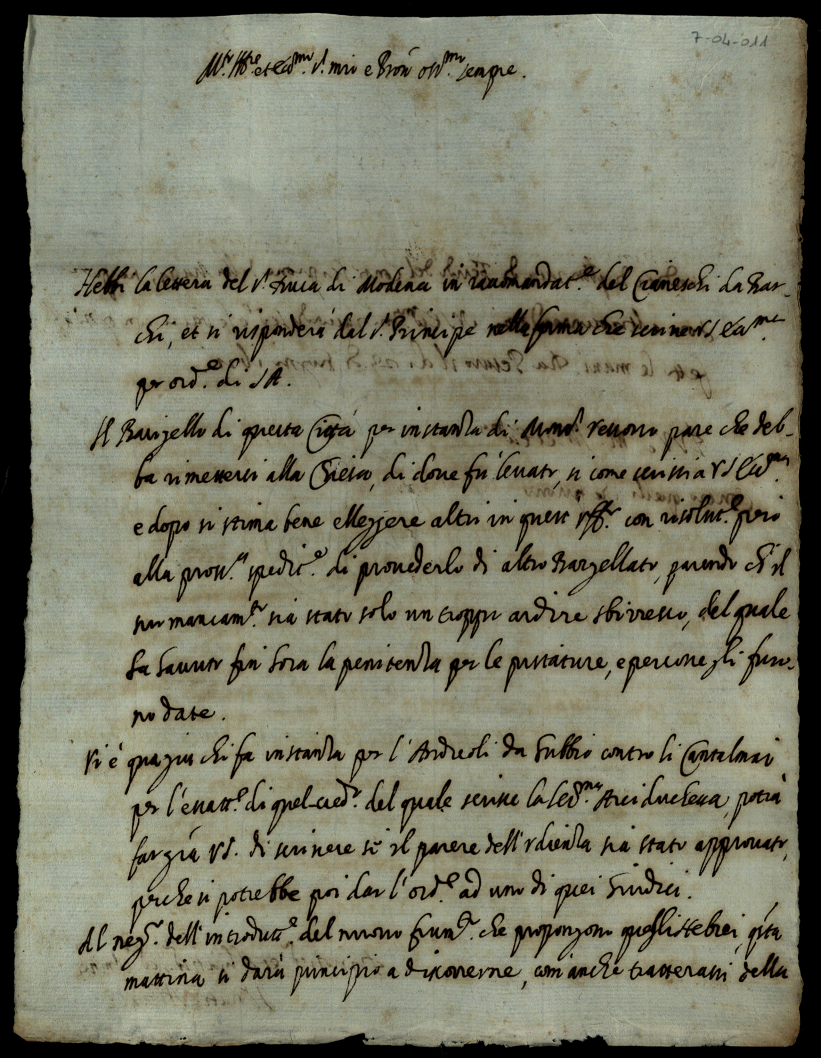 7-04-011
M.to Ill.re et Ecc.mo s.r mio e Pron oss.mo sempre.
Hebbi la lettera del s.r Duca di Modena in raccomandat.e del da Bar-
chi, et si risponderà dal s.r Principe nella forma che scrive VS Ecc.ma
per ord.e di SA.
Il Bargello di questa Città per instanza di Mons.r Vescovo pare che deb-
ba rimettersi alla Chiesa, di dove fù levato, si come scrissi a VS Ecc.ma
e dopo si stima bene elleggere altro in quest Uff.o con risolut.e però
alla pross.a spedic.e di provederlo di altro Bargellato, parendo ch'il
suo mancam.to sia stato solo un troppo ardire sbirresco, del quale
ha havuto fin hora la penitenza per le , e percosse gli furo-
no date.
Vi è qua giu chi fa instanza per l'Andreoli da Gubbio contro li Cantalmai
per l' di quel cred.o del quale scrisse la Ser.ma Arciduchessa, potrà
far già VS. di scrivere se il parere dell'Udienza sia stato approvato,
perche si potrebbe poi dar l'ord.e ad uno di quei Giudici.
Al neg.o dell'introdutt.e del nuovo che propongono quegli Hebrei, q.sta
mattina si darà principio a discorrerne, com'anche trattarassi della